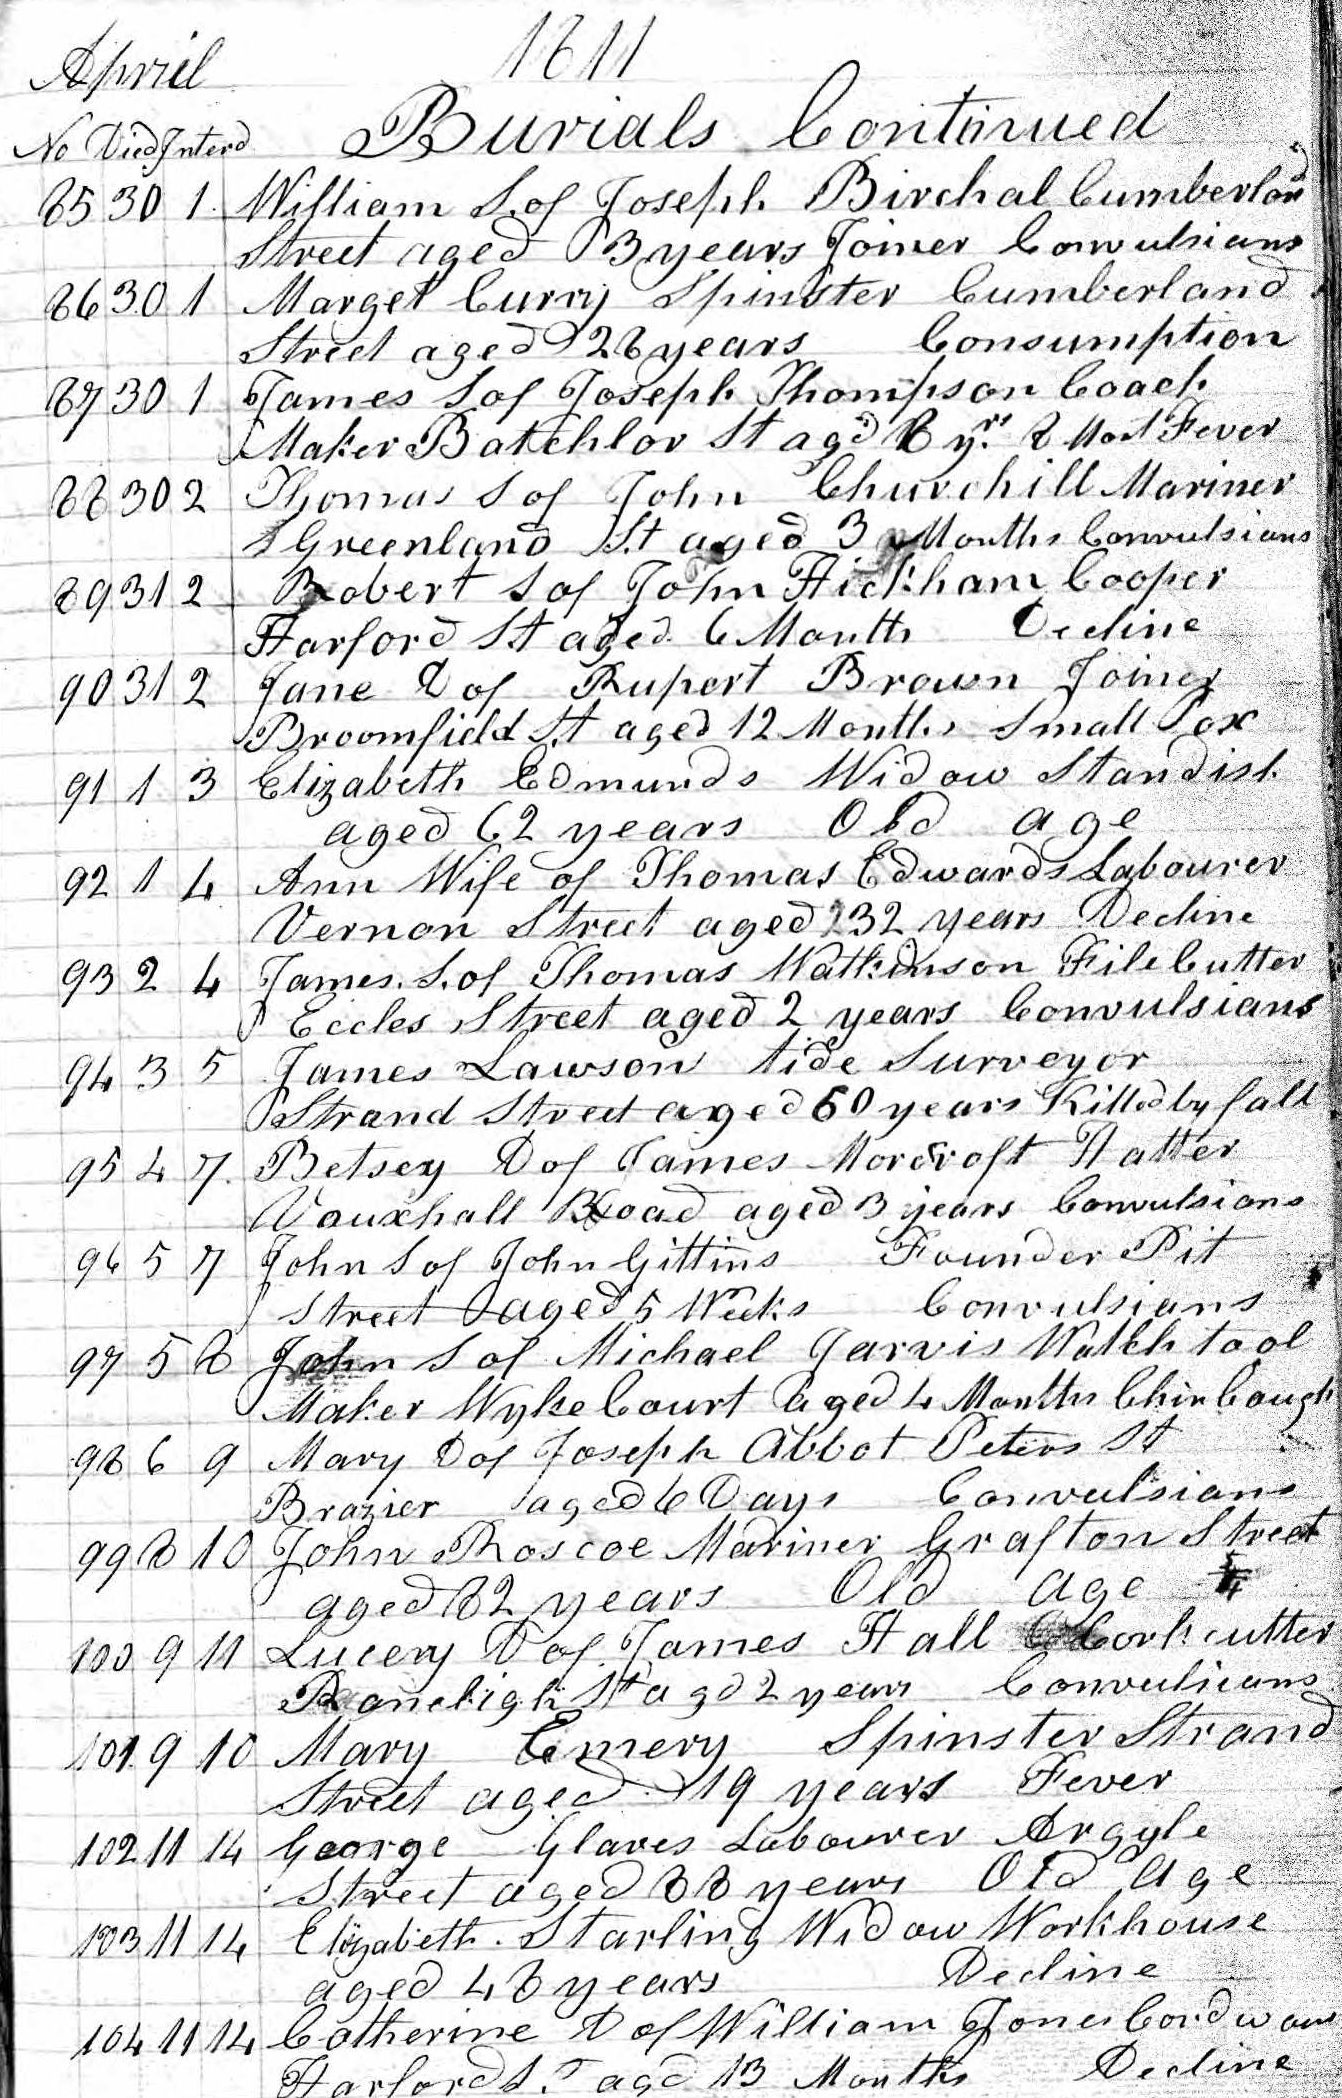 April 1811
No Died Interd Burials Continued
85 30 1 William S. of Joseph Birchal Cumberland
Street aged 3 years Joiner Convulsians
86 30 1 Marget Curry Spinster Cumberland
Street aged 28 years Consumption
87 30 1 James S of Joseph Thompson Coach
Maker Batchlor St agd 8 yrs 8 Mont Fever
88 30 2 Thomas S of John Churchill Mariner
Greenland St aged 3 Months Convulsians
89 31 2 Robert S of John Hickham Cooper
Harford St aged 6 Month Decline
90 31 2 Jane D of Rupert Brown Joiner
Broomfield St aged 12 Months Small Pox
91 1 3 Elizabeth Edmunds Widow Standish
aged 62 years Old age
92 1 4 Ann Wife of Thomas Edwards Labourer
Vernon Street aged 32 years Decline
93 2 4 James. S. of Thomas Watkinson File Cutter
Eccles Street aged 2 years Convulsians
94 3 5 James Lawson tide Surveyor
Strand Street aged 60 years Killed by fall
95 4 7. Betsey D of James Morcroft Hatter
Vauxhall Road aged 3 years Convulsions
96 5 7 John S of John Gittins Founder Pit
Street aged 5 Weeks Convulsians
97 5 8 John S of Michael Jarvis Watch tool
Maker Wyke Court aged 4 Months Chin Cough
98 6 9 Mary D of Joseph Abbot Peters St
Brazier aged 6 Days Convulsians
99 8 10 John Roscoe Mariner Grafton Street
aged 82 years Old age
100 9 11 Lucery D of James Hall Cork cutter
Raneleigh St agd 2 years Convulsians
101. 9 10 Mary Emery Spinster Strand
Street aged 19 years Fever
102 11 14 George Glaves Labourer Argyle
Street aged 88 years Old Age
103 11 14 Elizabeth. Starling Widow Workhouse
aged 48 years Decline
104 11 14 Catherine D of William Jones Cordwan
Harford St agd 13 Months Decline